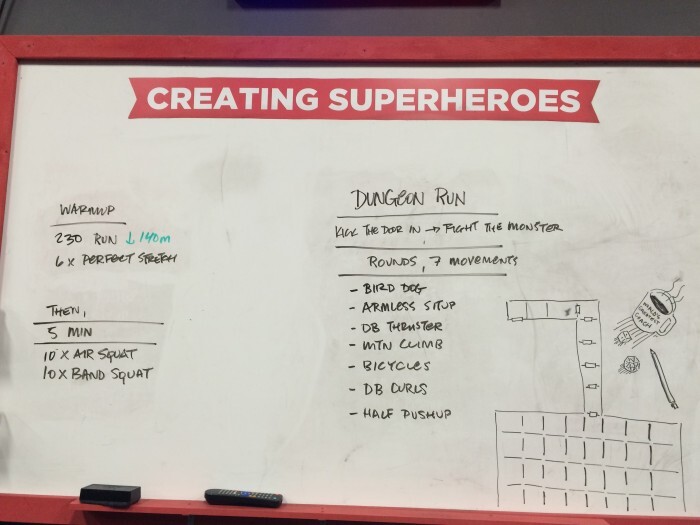 CREATING SUPERHEROES
WARMUP
230 RUN ↓ 140m
6 x PERFECT STRETCH
THEN,
5 MIN
10 x AIR SQUAT
10 x BAND SQUAT
DUNGEON RUN
KICK THE DOOR IN → FIGHT THE MONSTER
ROUNDS, 7 MOVEMENTS
- BIRD DOG
- ARMLESS SITUP
- DB THRUSTER
- MTN CLIMB
- BICYCLES
- DB CURLS
- HALF PUSHUP
WORLD'S
GREATEST
COACH